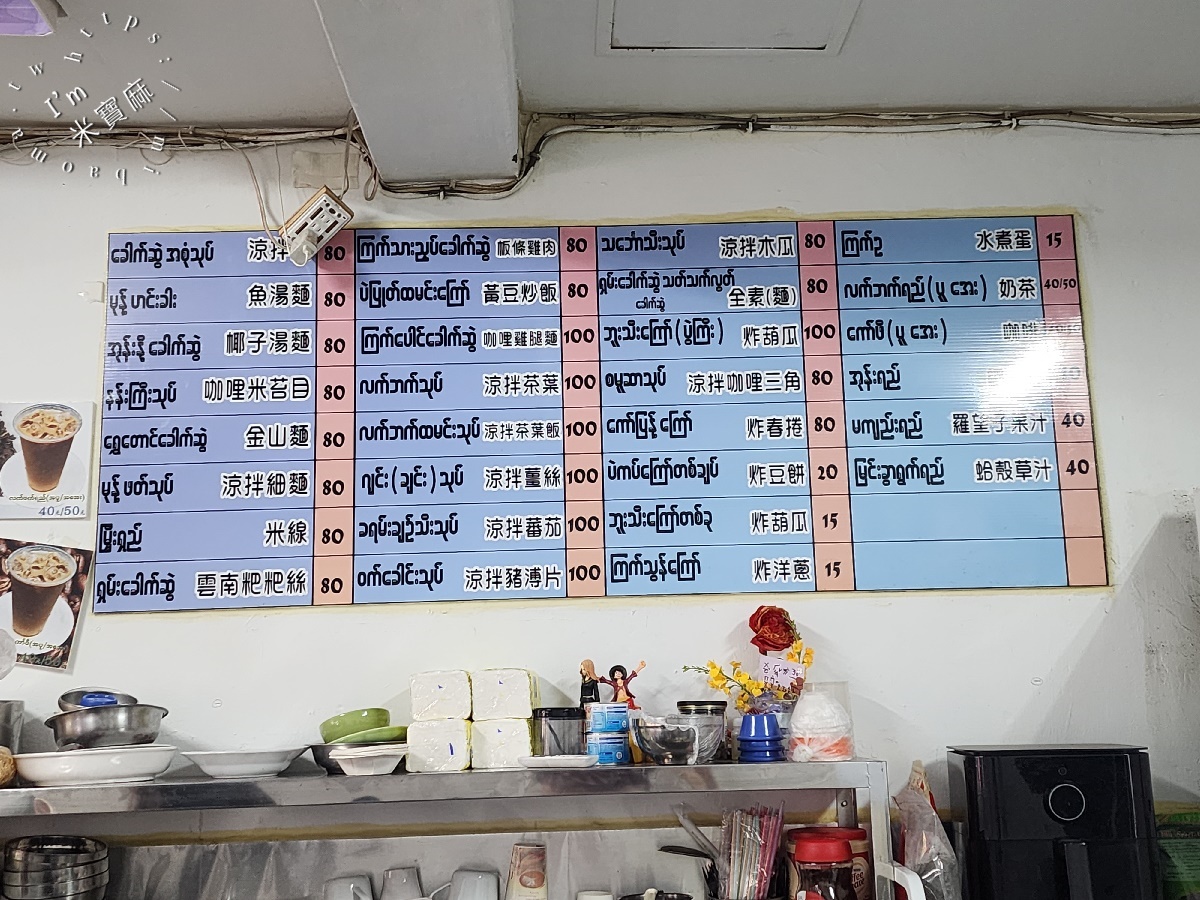 https:
I'm
米寶麻
ခေါက်ဆွဲအစုံသုပ် 涼拌 80
မုန့်ဟင်းခါး 魚湯麵 80
အုန်းနို့ခေါက်ဆွဲ 椰子湯麵 80
နန်းကြီးသုပ် 咖哩米苔目 80
ရွှေတောင်ခေါက်ဆွဲ 金山麵 80
မုန့်ဖတ်သုပ် 涼拌細麵 80
မြီးရှည် 米線 80
ရှမ်းခေါက်ဆွဲ 雲南粑粑絲 80
ကြက်သားညှပ်ခေါက်ဆွဲ 板條雞肉 80
ပဲပြုတ်ထမင်းကြော် 黃豆炒飯 80
ကြက်ပေါင်ခေါက်ဆွဲ 咖哩雞腿麵 100
လက်ဘက်သုပ် 涼拌茶葉 100
လက်ဘက်ထမင်းသုပ် 涼拌茶葉飯 100
ဂျင်း(ချင်း)သုပ် 涼拌薑絲 100
ခရမ်းချဉ်သီးသုပ် 涼拌蕃茄 100
ဝက်ခေါင်းသုပ် 涼拌豬薄片 100
သင်္ဘောသီးသုပ် 涼拌木瓜 80
ရှမ်းခေါက်ဆွဲ သတ်သက်လွတ်
ခေါက်ဆွဲ 全素(麵) 80
ဘူးသီးကြော်(ပွဲကြီး) 炸葫瓜 100
စမူဆာသုပ် 涼拌咖哩三角 80
ကော်ပြန့်ကြော် 炸春捲 80
ပဲကပ်ကြော်တစ်ချပ် 炸豆餅 20
ဘူးသီးကြော်တစ်ခု 炸葫瓜 15
ကြက်သွန်ကြော် 炸洋蔥 15
ကြက်ဥ 水煮蛋 15
လက်ဘက်ရည်(ပူ အေး) 奶茶 40/50
ကော်ဖီ(ပူ အေး) 咖啡
အုန်းရည်
မကျည်းရည် 羅望子果汁 40
မြင်းခွာရွက်ရည် 蛤殼草汁 40
လက်ဖက်ရည်(အပူ/အအေး)
40/50